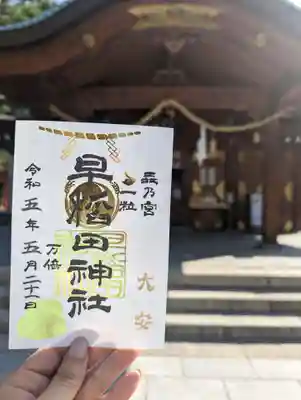 森乃宮
一粒
早稲田神社
万倍
大安
令和五年五月二十一日